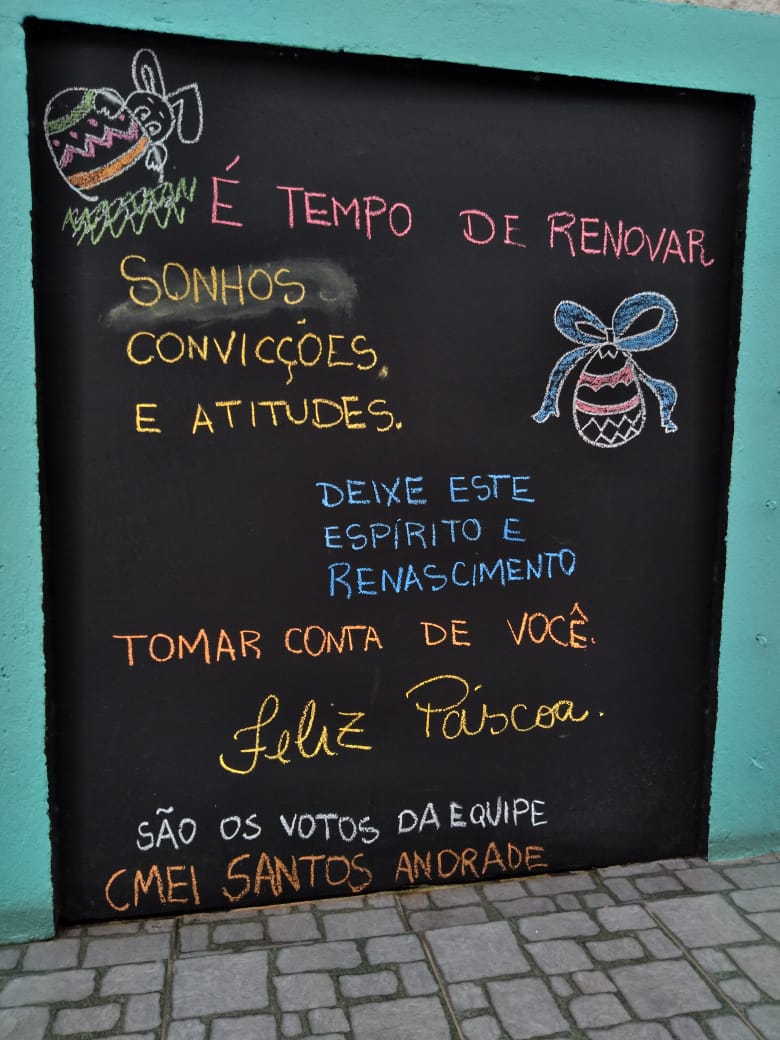 É TEMPO DE RENOVAR
SONHOS
CONVICÇÕES,
E ATITUDES.
DEIXE ESTE
ESPÍRITO E
RENASCIMENTO
TOMAR CONTA DE VOCÊ.
Feliz Páscoa.
SÃO OS VOTOS DA EQUIPE
CMEI SANTOS ANDRADE